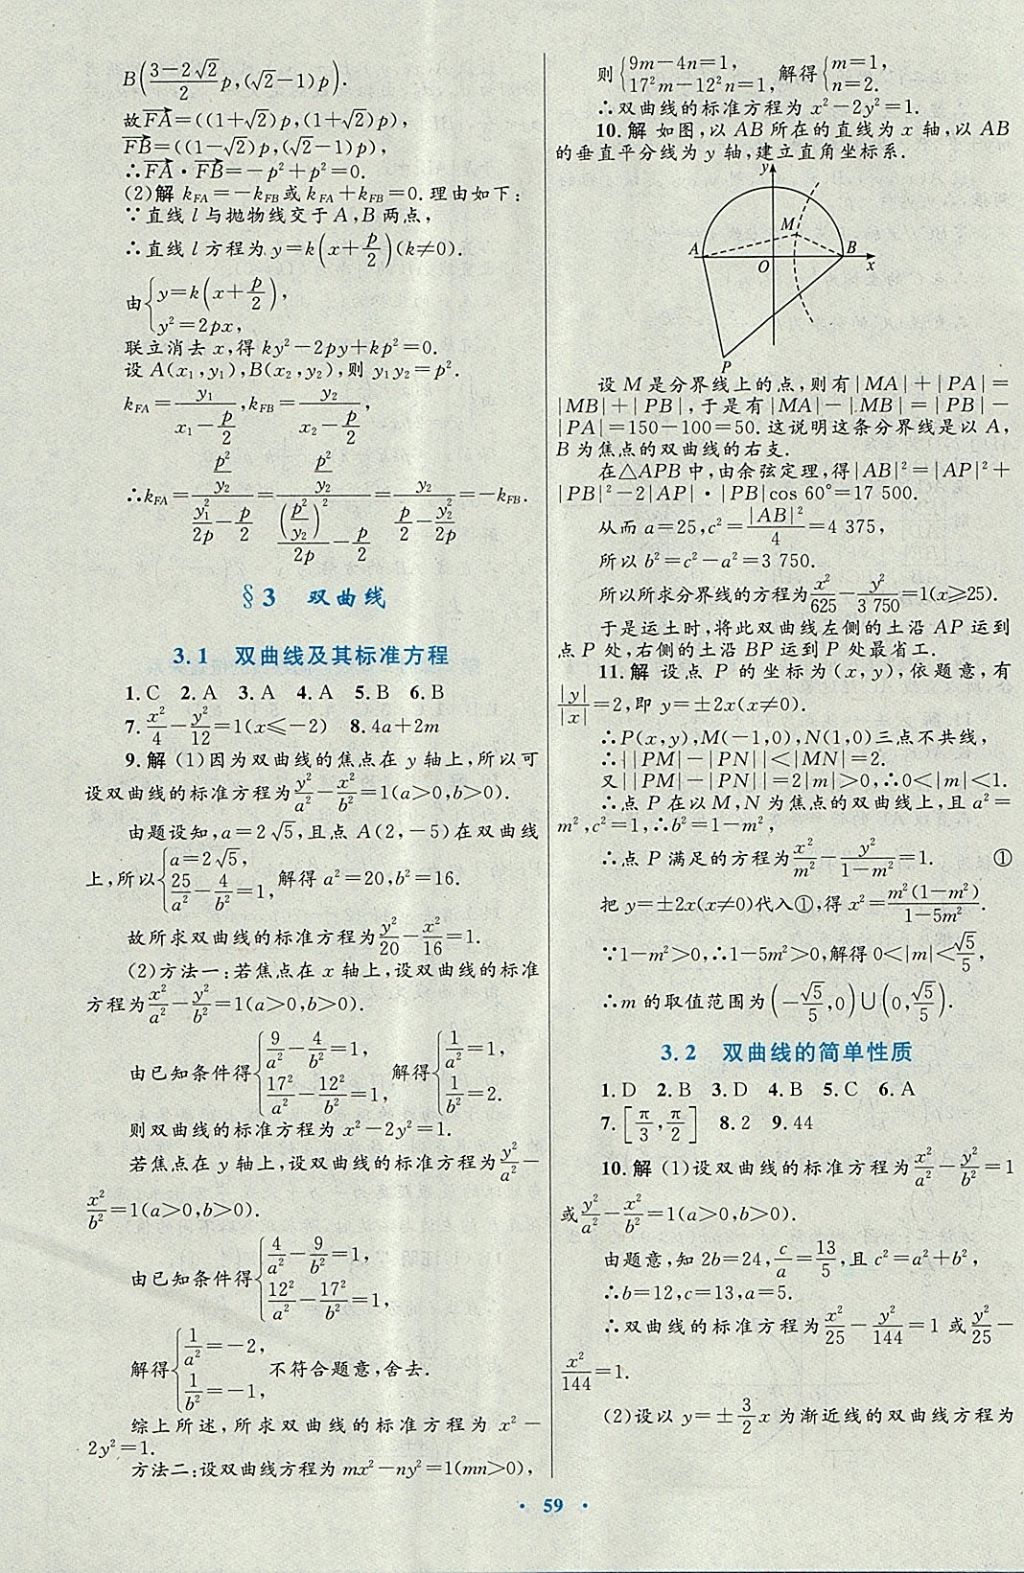 B((3-2√2)/2 p,(√2-1)p).
故FA=((1+√2)p,(1+√2)p),
FB=((1-√2)p,(√2-1)p),
∴FA·FB=-p²+p²=0.
(2)解 k_FA=-k_FB或k_FA+k_FB=0.理由如下:
∵直线 l 与抛物线交于 A,B 两点,
∴直线 l 方程为 y=k(x+p/2)(k≠0).
由{y=k(x+p/2),
y²=2px,
联立消去 x,得 ky²-2py+kp²=0.
设 A(x₁,y₁),B(x₂,y₂),则 y₁y₂=p².
k_FA=y₁/(x₁-p/2),k_FB=y₂/(x₂-p/2),
∴k_FA=(p²/y₂)/(y₁²/2p-p/2)=(p²/y₂)/((p²/y₂)²/2p-p/2)=y₂/(p/2-y₂²/2p)=-k_FB.
§3 双曲线
3.1 双曲线及其标准方程
1.C 2.A 3.A 4.A 5.B 6.B
7.x²/4-y²/12=1(x≤-2) 8.4a+2m
9.解 (1)因为双曲线的焦点在 y 轴上,所以可
设双曲线的标准方程为y²/a²-x²/b²=1(a>0,b>0).
由题设知,a=2√5,且点 A(2,-5)在双曲线
上,所以{a=2√5,
25/a²-4/b²=1, 解得 a²=20,b²=16.
故所求双曲线的标准方程为y²/20-x²/16=1.
(2)方法一:若焦点在 x 轴上,设双曲线的标准
方程为x²/a²-y²/b²=1(a>0,b>0).
由已知条件得{9/a²-4/b²=1, 17²/a²-12²/b²=1, 解得{1/a²=1, 1/b²=2.
则双曲线的标准方程为 x²-2y²=1.
若焦点在 y 轴上,设双曲线的标准方程为y²/a²-
x²/b²=1(a>0,b>0).
由已知条件得{4/a²-9/b²=1, 12²/a²-17²/b²=1,
解得{1/a²=-2, 1/b²=-1, 不符合题意,舍去.
综上所述,所求双曲线的标准方程为 x²-
2y²=1.
方法二:设双曲线方程为 mx²-ny²=1(mn>0),
则{9m-4n=1, 17²m-12²n=1, 解得{m=1, n=2.
∴双曲线的标准方程为 x²-2y²=1.
10.解 如图,以 AB 所在的直线为 x 轴,以 AB
的垂直平分线为 y 轴,建立直角坐标系.
y
M
A
B
O
x
P
设 M 是分界线上的点,则有|MA|+|PA|=
|MB|+|PB|,于是有|MA|-|MB|=|PB|-
|PA|=150-100=50.这说明这条分界线是以 A,
B 为焦点的双曲线的右支.
在△APB 中,由余弦定理,得|AB|²=|AP|²+
|PB|²-2|AP|·|PB|cos 60°=17 500.
从而 a=25,c²=|AB|²/4=4 375,
所以 b²=c²-a²=3 750.
所以所求分界线的方程为x²/625-y²/3 750=1(x≥25).
于是运土时,将此双曲线左侧的土沿 AP 运到
点 P 处,右侧的土沿 BP 运到 P 处最省工.
11.解 设点 P 的坐标为(x,y),依题意,有
|y|/|x|=2,即 y=±2x(x≠0).
∴P(x,y),M(-1,0),N(1,0)三点不共线,
∴||PM|-|PN||<|MN|=2.
又||PM|-|PN||=2|m|>0,∴0<|m|<1.
∴点 P 在以 M,N 为焦点的双曲线上,且 a²=
m²,c²=1,∴b²=1-m²,
∴点 P 满足的方程为x²/m²-y²/(1-m²)=1. ①
把 y=±2x(x≠0)代入①,得 x²=m²(1-m²)/(1-5m²).
∵1-m²>0,∴1-5m²>0,解得 0<|m|<√5/5,
∴m 的取值范围为(-√5/5,0)∪(0,√5/5).
3.2 双曲线的简单性质
1.D 2.B 3.D 4.B 5.C 6.A
7.[π/3,π/2] 8.2 9.44
10.解 (1)设双曲线的标准方程为x²/a²-y²/b²=1
或y²/a²-x²/b²=1(a>0,b>0).
由题意,知 2b=24,c/a=13/5,且 c²=a²+b²,
∴b=12,c=13,a=5.
∴双曲线的标准方程为x²/25-y²/144=1 或y²/25-
x²/144=1.
(2)设以 y=±3/2x 为渐近线的双曲线方程为
· 59 ·